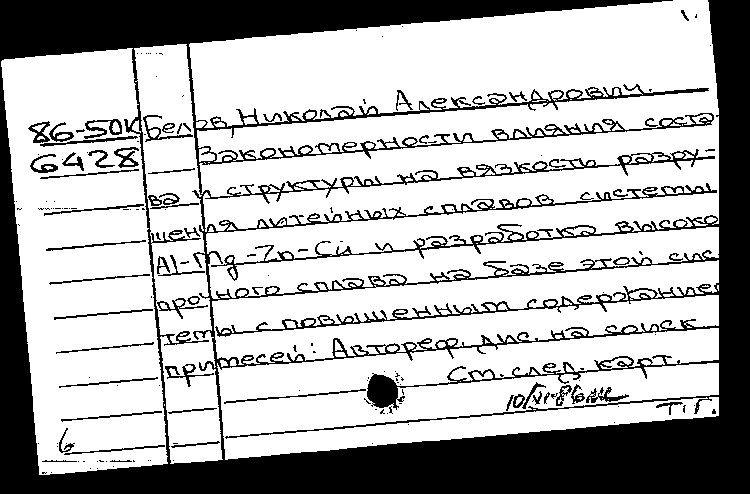 1.
86-50К Белов, Николай Александрович.
6428 Закономерности влияния соста-
ва и структуры на вязкость разру-
шения литейных сплавов системы
Al-Mg-Zn-Cu и разработка высоко
прочного сплава на базе этой сис
темы с повышенным содержанием
примесей: Автореф. дис. на соиск
См. след. карт.
10/VI-86
Т.Г.
6